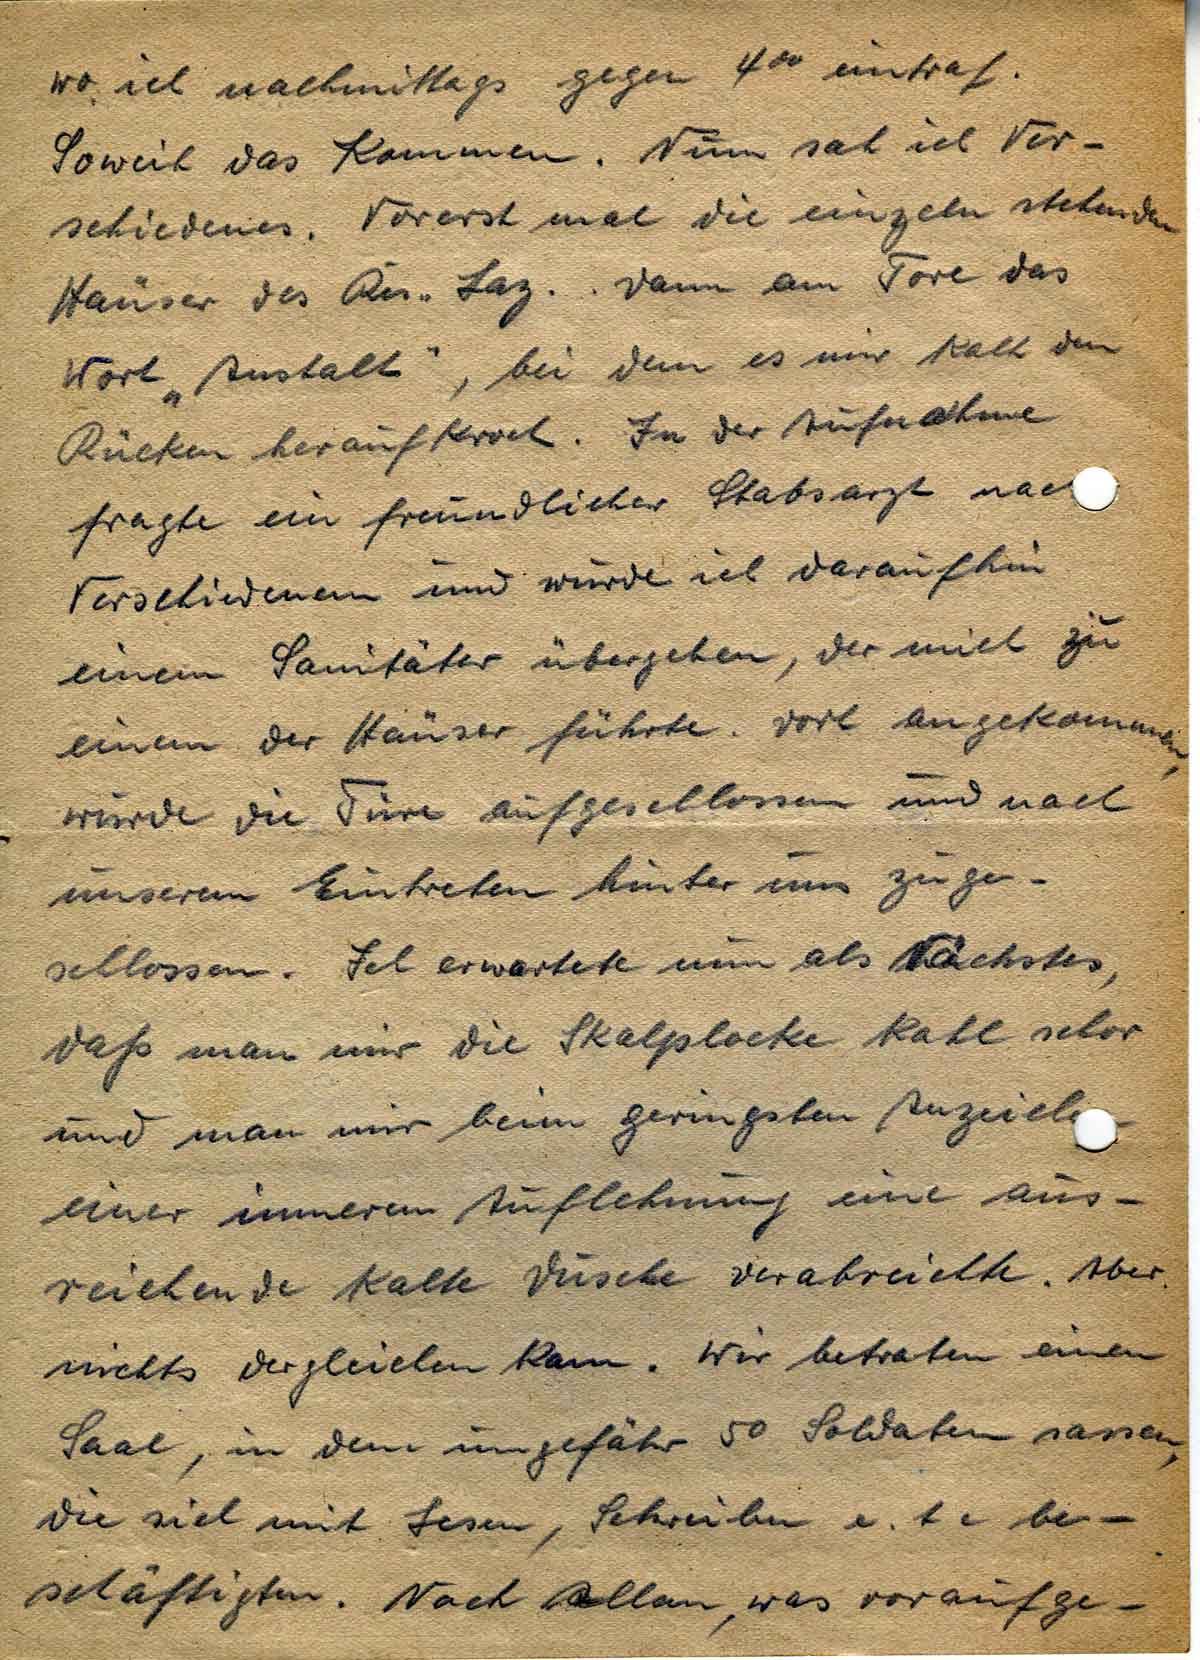 wo ich nachmittags gegen 4⁰⁰ eintraf.
Soweit das Kommen. Nun sah ich Ver-
schiedenes. Vorerst mal die einzeln stehenden
Häuser des Res.. Laz.. Dann am Tore das
Wort „Anstalt", bei dem es mir kalt den
Rücken heraufkroch. In der Aufnahme
fragte ein freundlicher Stabsarzt nach
Verschiedenem und wurde ich daraufhin
einem Sanitäter übergeben, der mich zu
einem der Häuser führte. Dort angekommen,
wurde die Türe aufgeschlossen und nach
unserem Eintreten hinter uns zuge-
schlossen. Ich erwartete nun als Nächstes,
daß man mir die Skalplocke kahl schor
und man mir beim geringsten Anzeichen
einer inneren Auflehnung eine aus-
reichende kalte Dusche verabreichte. Aber
nichts dergleichen kam. Wir betraten einen
Saal, in dem ungefähr 50 Soldaten sassen,
die sich mit Lesen, Schreiben e. t c be-
schäftigten. Nach Allem, was voraufge-